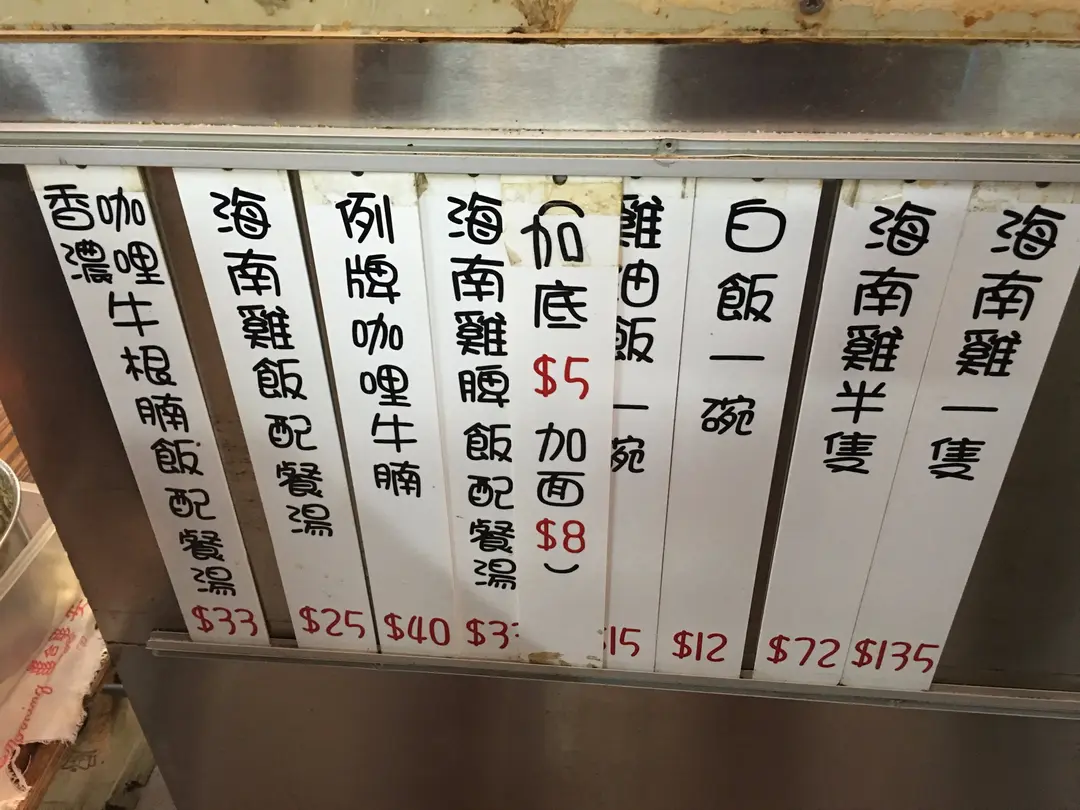 香濃咖哩牛根腩飯配餐湯 $33
海南雞飯配餐湯 $25
例牌咖哩牛腩 $40
海南雞髀飯配餐湯 $3
(加底 $5 加面 $8)
雞油飯一碗 15
白飯一碗 $12
海南雞半隻 $72
海南雞一隻 $135